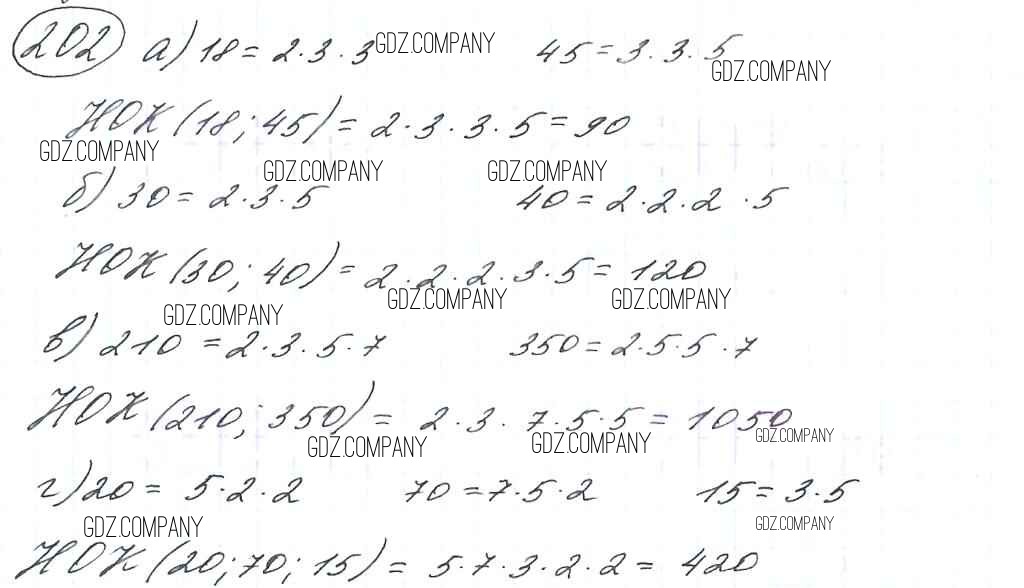 202 а) 18 = 2·3·3 GDZ.COMPANY 45 = 3·3·5
GDZ.COMPANY
НОК (18; 45) = 2·3·3·5 = 90
GDZ.COMPANY
GDZ.COMPANY GDZ.COMPANY
б) 30 = 2·3·5 40 = 2·2·2·5
НОК (30; 40) = 2·2·2·3·5 = 120
GDZ.COMPANY GDZ.COMPANY
GDZ.COMPANY
в) 210 = 2·3·5·7 350 = 2·5·5·7
НОК (210; 350) = 2·3·7·5·5 = 1050
GDZ.COMPANY GDZ.COMPANY GDZ.COMPANY
г) 20 = 5·2·2 70 = 7·5·2 15 = 3·5
GDZ.COMPANY GDZ.COMPANY
НОК (20; 70; 15) = 5·7·3·2·2 = 420